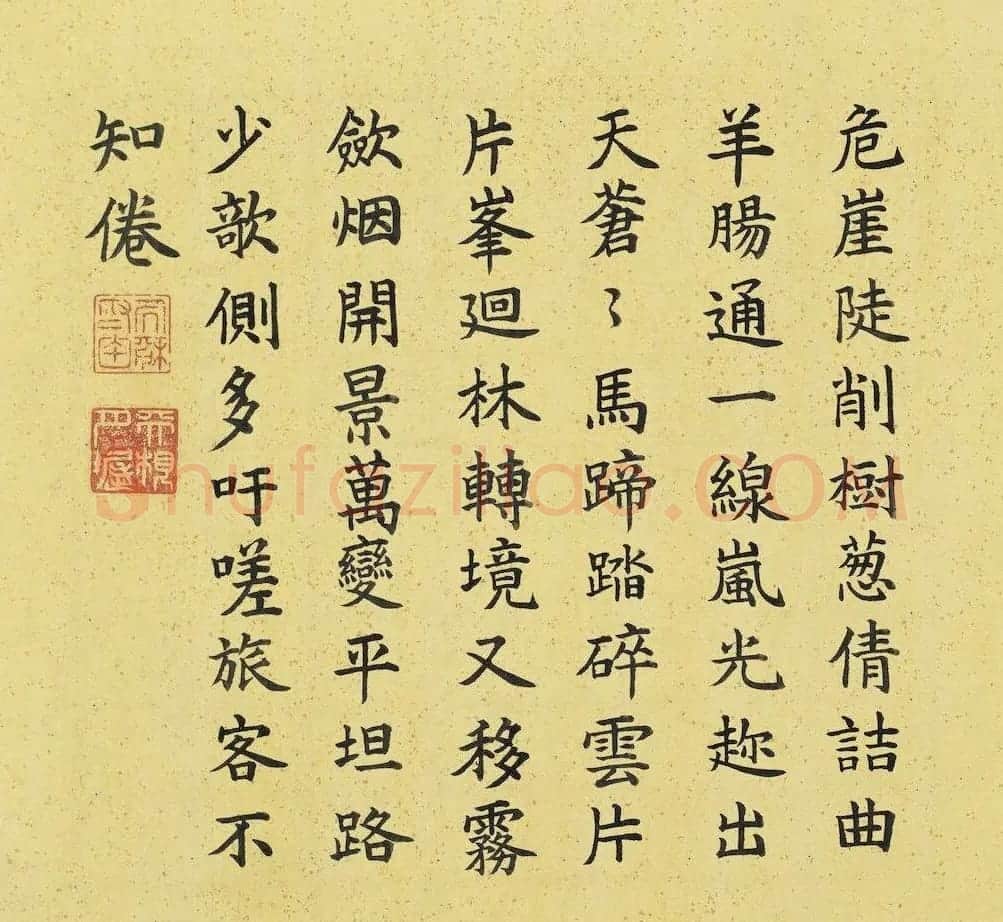 危崖陡削樹葱倩詰曲
羊腸通一線嵐光趂出
天蒼〻馬蹄踏碎雲片
片峯廻林轉境又移霧
歛烟開景萬變平坦路
少欹側多吁嗟旅客不
知倦
shufaziliao.COM